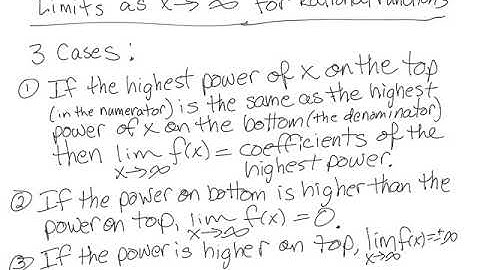 Limits as x→∞ for Rational Functions
3 Cases:
① If the highest power of x on the top
(in the numerator) is the same as the highest
power of x on the bottom (the denominator)
then lim f(x) = coefficients of the
x→∞ highest power.
② If the power on bottom is higher than the
power on top, lim f(x) = 0.
x→∞
③ If the power is higher on top, lim f(x)=±∞
x→∞